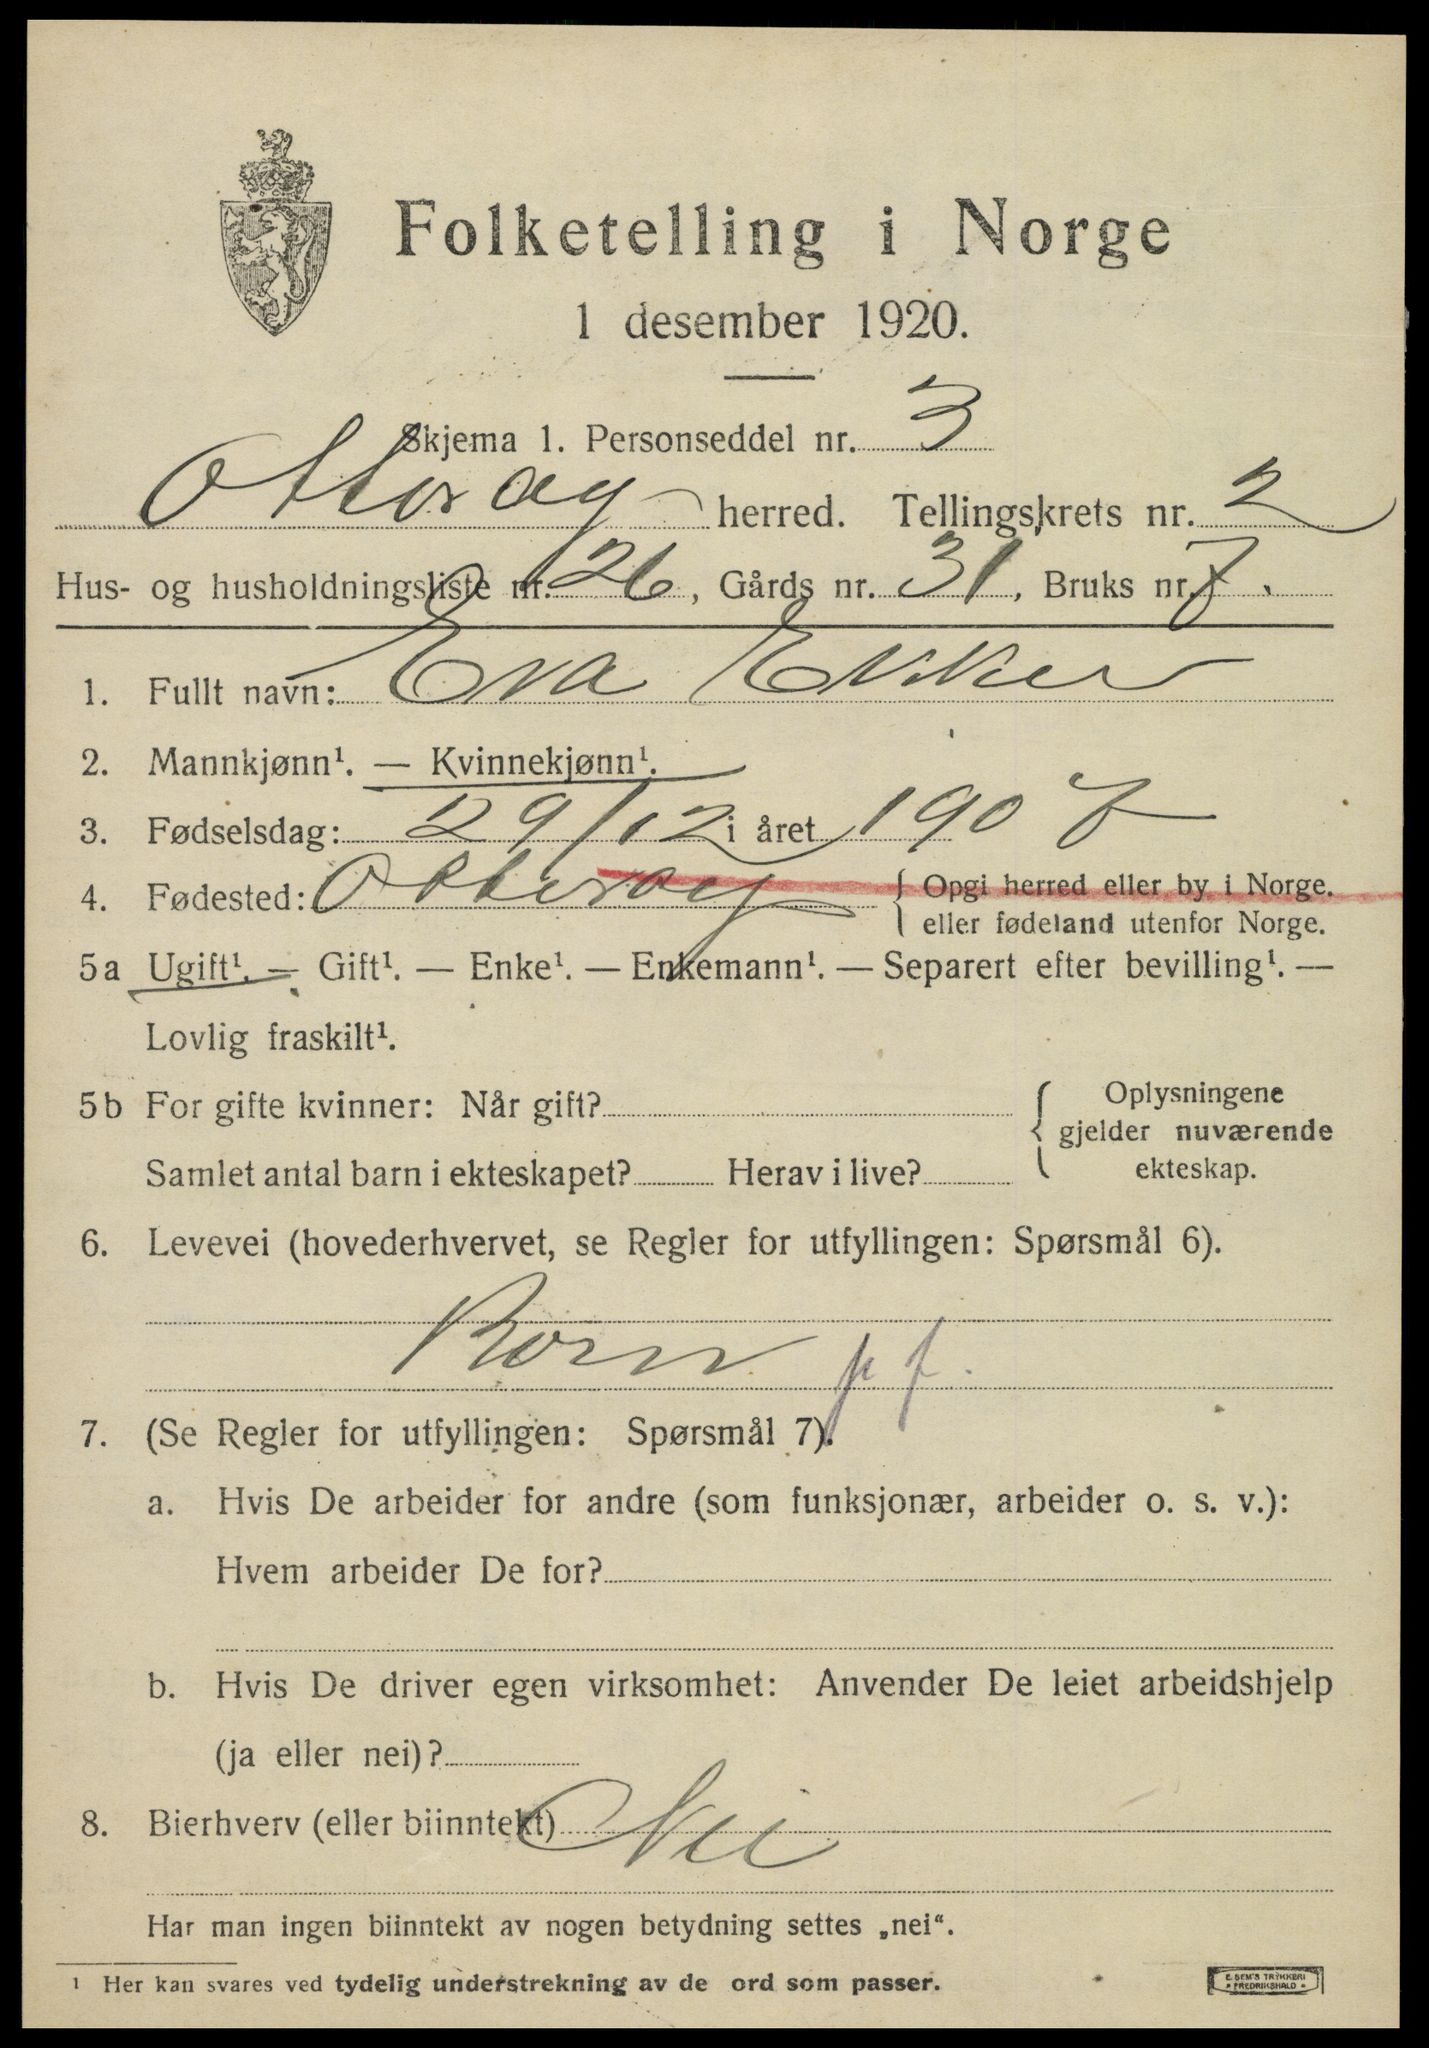 Folketelling i Norge
1 desember 1920.
Skjema 1. Personseddel nr. 3
Otterøy herred. Tellingskrets nr. 2
Hus- og husholdningsliste nr. 26, Gårds nr. 31, Bruks nr. 7.
1. Fullt navn: Eva Ekker
2. Mannkjønn¹. — Kvinnekjønn¹.
3. Fødselsdag: 29/12 i året 1907
4. Fødested: Otterøy { Opgi herred eller by i Norge.
eller fødeland utenfor Norge.
5a Ugift¹. — Gift¹. — Enke¹. — Enkemann¹. — Separert efter bevilling¹. —
Lovlig fraskilt¹.
5b For gifte kvinner: Når gift?
Samlet antal barn i ekteskapet? Herav i live?
{ Oplysningene
gjelder nuværende
ekteskap.
6. Levevei (hovederhvervet, se Regler for utfyllingen: Spørsmål 6).
Barn pf.
7. (Se Regler for utfyllingen: Spørsmål 7).
a. Hvis De arbeider for andre (som funksjonær, arbeider o. s. v.):
Hvem arbeider De for?
b. Hvis De driver egen virksomhet: Anvender De leiet arbeidshjelp
(ja eller nei)?
8. Bierhverv (eller biinntekt) Nei
Har man ingen biinntekt av nogen betydning settes „nei“.
¹ Her kan svares ved tydelig understrekning av de ord som passer.
E. SEM'S TRYKKERI
FREDRIKSHALD